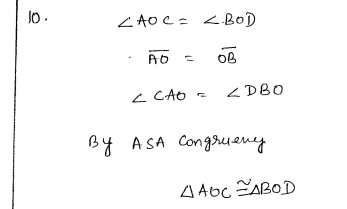 10. ∠AOC = ∠BOD
AO = OB
∠CAO = ∠DBO
By ASA Congruency
△AOC ≅ △BOD